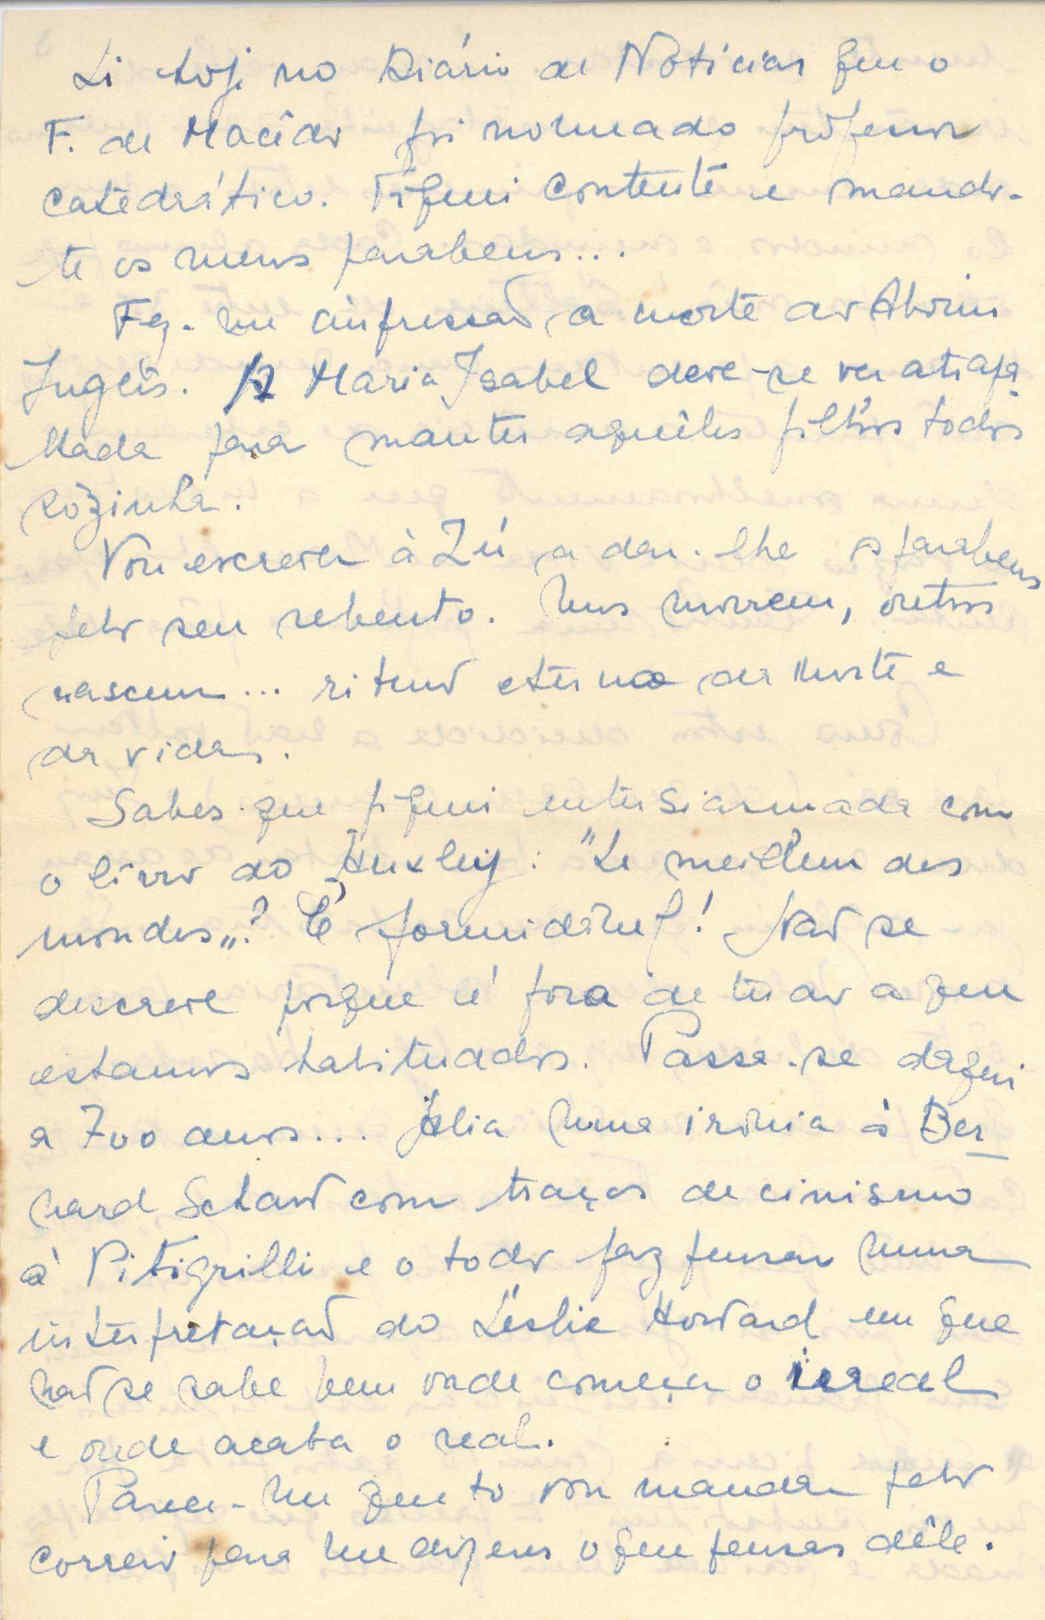 Li hoje no Diário de Notícias que o
F. de Macêdo foi nomeado professor
catedrático. Fiquei contente e mando-
te os meus parabens...
Fez-me impressão a morte do Aboim
Inglês. A Maria Isabel deve-se ver atrapa
lhada para manter aquêles filhos todos
sòzinha.
Vou escrever à Zú a dar-lhe os parabens
pelo seu rebento. Uns morrem, outros
nascem... ritmo eterno da morte e
da vida.
Sabes que fiquei entusiasmada com
o livro do Huxley: "Le meilleur des
mondes"? É formidável! Não se
descreve porque é fora de tudo a que
estamos habituados. Passa-se daqui
a 700 anos... Alia uma ironia à Ber
nard Schaw com traços de cinismo
à Pitigrilli e o todo faz pensar numa
interpretação do Leslie Howard em que
não se sabe bem onde começa o irreal
e onde acaba o real.
Parece-me que to vou mandar pelo
correio para me dizeres o que pensas dêle.